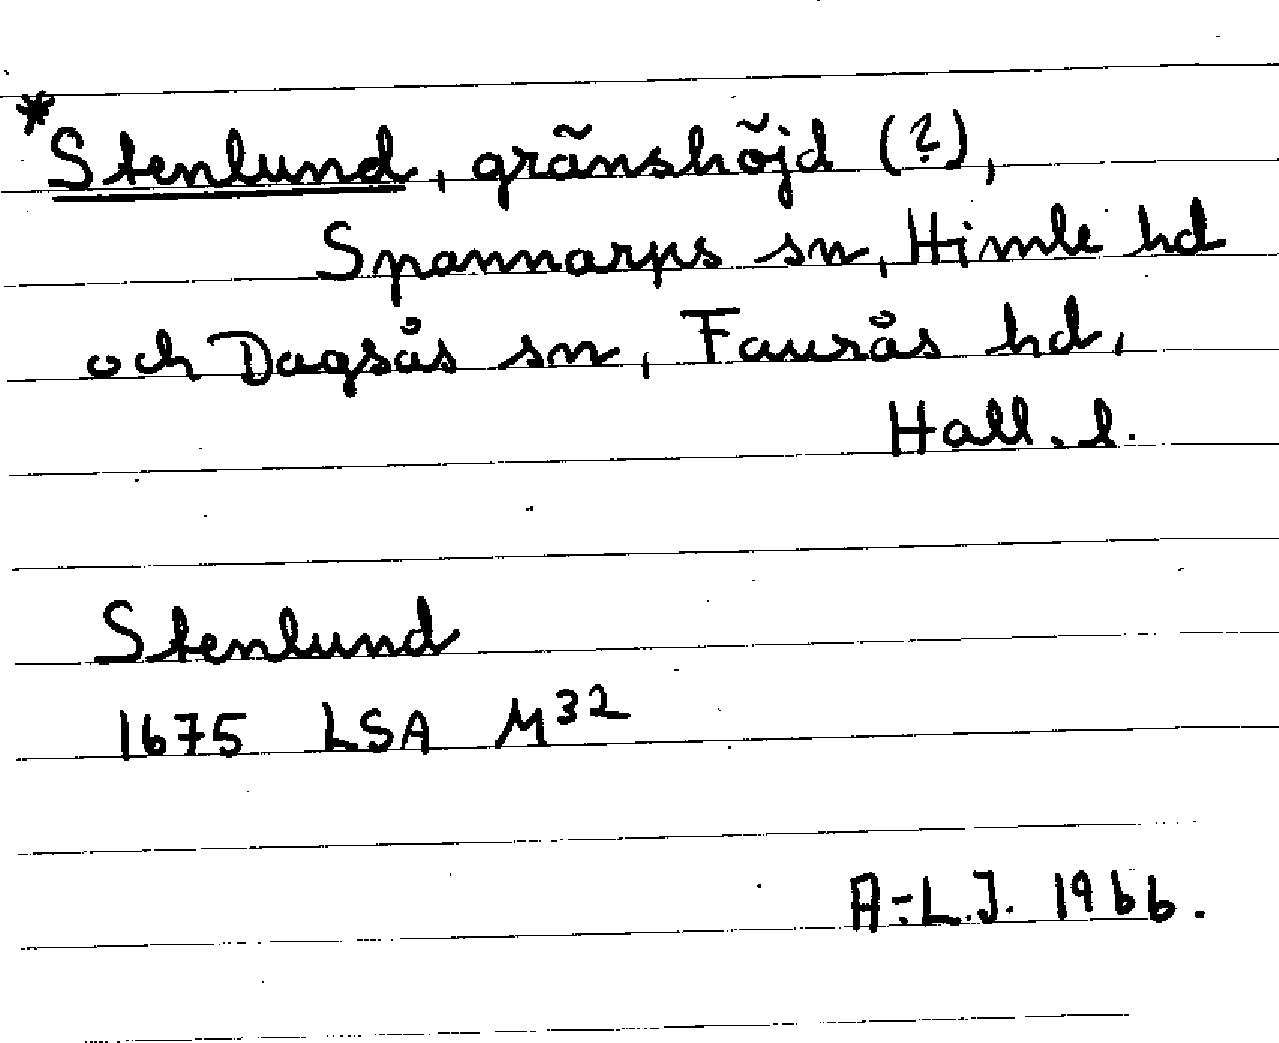 *Stenlund, gränshöjd (?),
Spannarps sn, Himle hd
och Dagsås sn, Faurås hd,
Hall. l.
Stenlund
1675 LSA M³²
A-L.J. 1966.